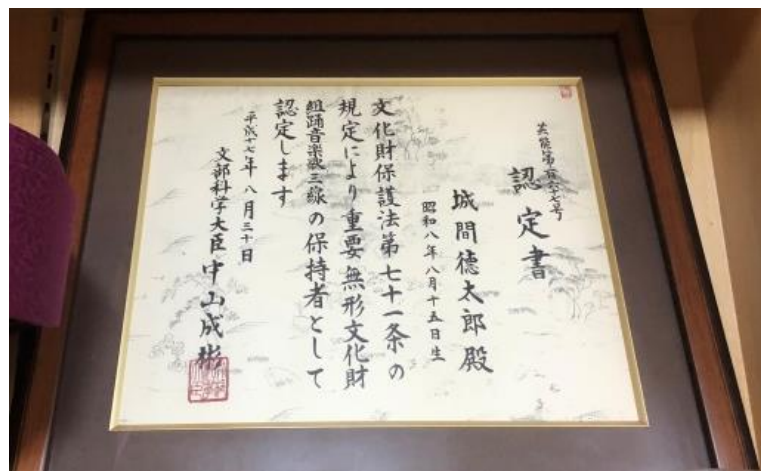 芸能第百六十七号
認定書
城間徳太郎殿
昭和八年八月十五日生
文化財保護法第七十一条の
規定により重要無形文化財
組踊音楽歌三線の保持者として
認定します
平成十七年八月三十日
文部科学大臣 中山成彬